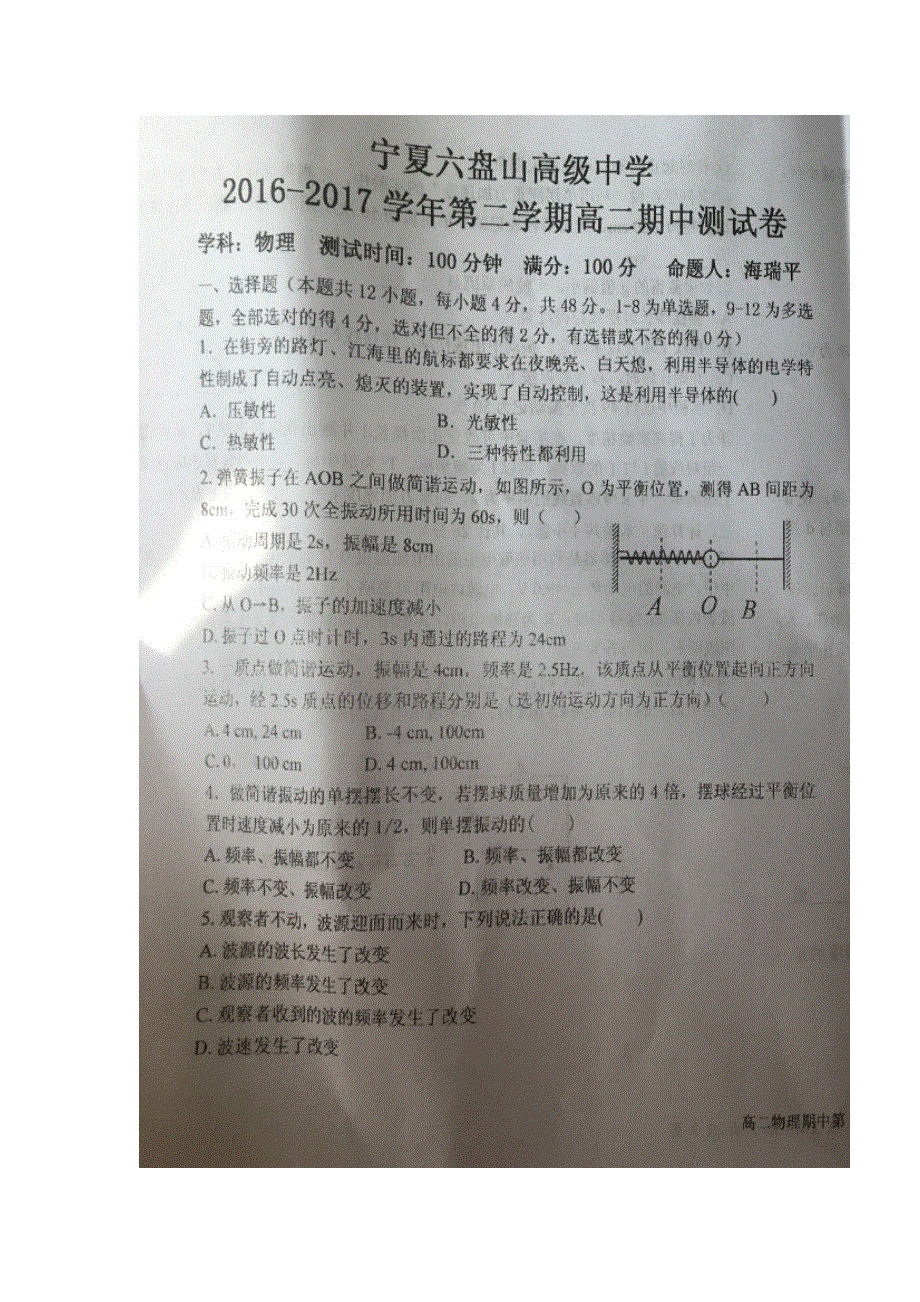 宁夏六盘山高级中学
2016-2017 学年第二学期高二期中测试卷
学科：物理 测试时间：100 分钟 满分：100 分 命题人：海瑞平
一、选择题（本题共 12 小题，每小题 4 分，共 48 分。1-8 为单选题，9-12 为多选
题，全部选对的得 4 分，选对但不全的得 2 分，有选错或不答的得 0 分）
1．在街旁的路灯、江海里的航标都要求在夜晚亮、白天熄，利用半导体的电学特
性制成了自动点亮、熄灭的装置，实现了自动控制，这是利用半导体的( )
A．压敏性 B．光敏性
C．热敏性 D．三种特性都利用
2.弹簧振子在 AOB 之间做简谐运动，如图所示，O 为平衡位置，测得 AB 间距为
8cm，完成 30 次全振动所用时间为 60s，则（ ）
A.振动周期是 2s，振幅是 8cm
B.振动频率是 2Hz
C.从 O→B，振子的加速度减小
D.振子过 O 点时计时，3s 内通过的路程为 24cm
A O B
3．一质点做简谐运动，振幅是 4cm，频率是 2.5Hz，该质点从平衡位置起向正方向
运动，经 2.5s 质点的位移和路程分别是（选初始运动方向为正方向）（ ）
A. 4 cm, 24 cm B. -4 cm, 100cm
C. 0， 100 cm D. 4 cm, 100cm
4．做简谐振动的单摆摆长不变，若摆球质量增加为原来的 4 倍，摆球经过平衡位
置时速度减小为原来的 1/2，则单摆振动的( )
A. 频率、振幅都不变 B. 频率、振幅都改变
C. 频率不变、振幅改变 D. 频率改变、振幅不变
5. 观察者不动，波源迎面而来时，下列说法正确的是( )
A. 波源的波长发生了改变
B. 波源的频率发生了改变
C. 观察者收到的波的频率发生了改变
D. 波速发生了改变
高二物理期中第